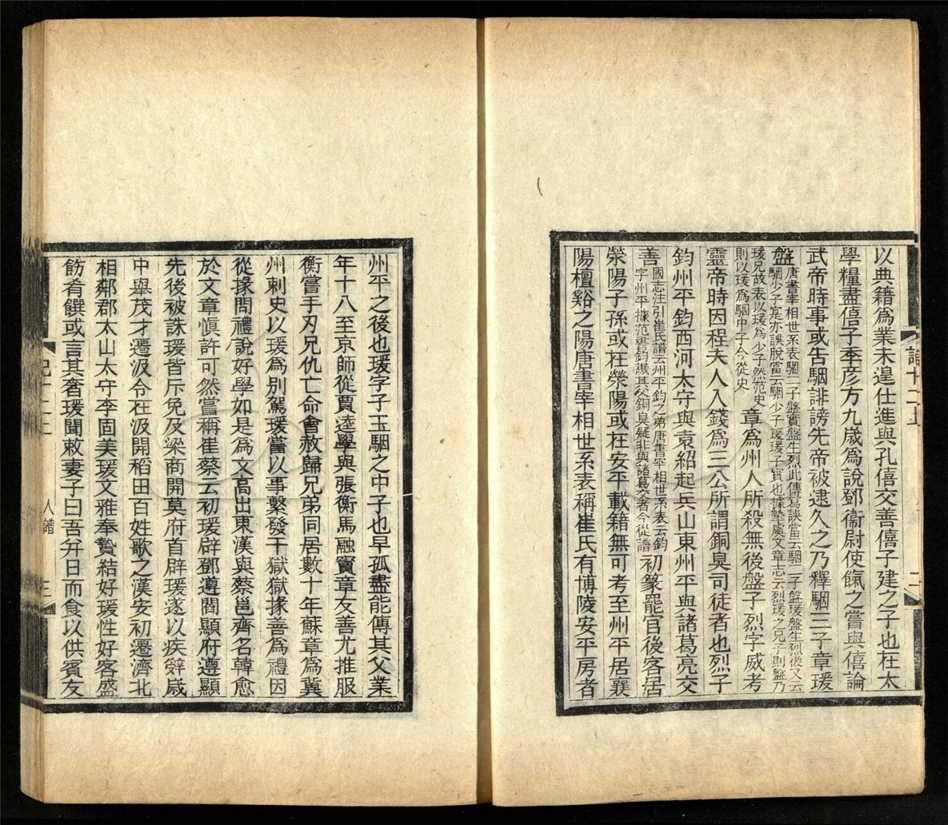 以典籍爲業未遑仕進與孔僖交善僖子建之子也在太
學糧盡僖子季彥方九歲爲說鄧衞尉使餼之嘗與僖論
武帝時事或告駰誹謗先帝被逮久之乃釋駰三子章瑗
盤唐書宰相世系表駰二子盤寔盤生烈此傳寫誤當云駰二子盤瑗盤生烈後又云
駰少子寔亦誤脫當云駰少子瑗瑗子寔也據摯虞文章志云烈瑗之兄子則盤乃
瑗兄故表以瑗爲少子然范史
則以瑗爲駰中子今從史
章爲州人所殺無後盤子烈字威考
靈帝時因程夫人入錢爲三公所謂銅臭司徒者也烈子
鈞州平鈞西河太守與袁紹起兵山東州平與諸葛亮交
善國志注引崔氏譜云州平鈞之弟唐書宰相世系表云鈞
字州平據范書鈞譏其父銅臭疑非與諸葛交者今從譜
初篆罷官後客居
滎陽子孫或在滎陽或在安平載籍無可考至州平居襄
陽檀谿之陽唐書宰相世系表稱崔氏有博陵安平房者
譜十二上
二
州平之後也瑗字子玉駰之中子也早孤盡能傳其父業
年十八至京師從賈逵學與張衡馬融竇章友善尤推服
衡嘗手刃兄仇亡命會赦歸兄弟同居數十年蘇章爲冀
州刺史以瑗爲別駕瑗嘗以事繫發干獄獄掾善爲禮因
從掾問禮說好學如是爲文高出東漢與蔡邕齊名韓愈
於文章愼許可然嘗稱崔蔡云初瑗辟鄧遵閻顯府遵顯
先後被誅瑗皆斥免及梁商開莫府首辟瑗遂以疾辭歲
中舉茂才遷汲令在汲開稻田百姓歌之漢安初遷濟北
相鄰郡太山太守李固美瑗文雅奉贄結好瑗性好客盛
飭肴饌或言其奢瑗聞敕妻子曰吾幷日而食以供賓友
人譜
三